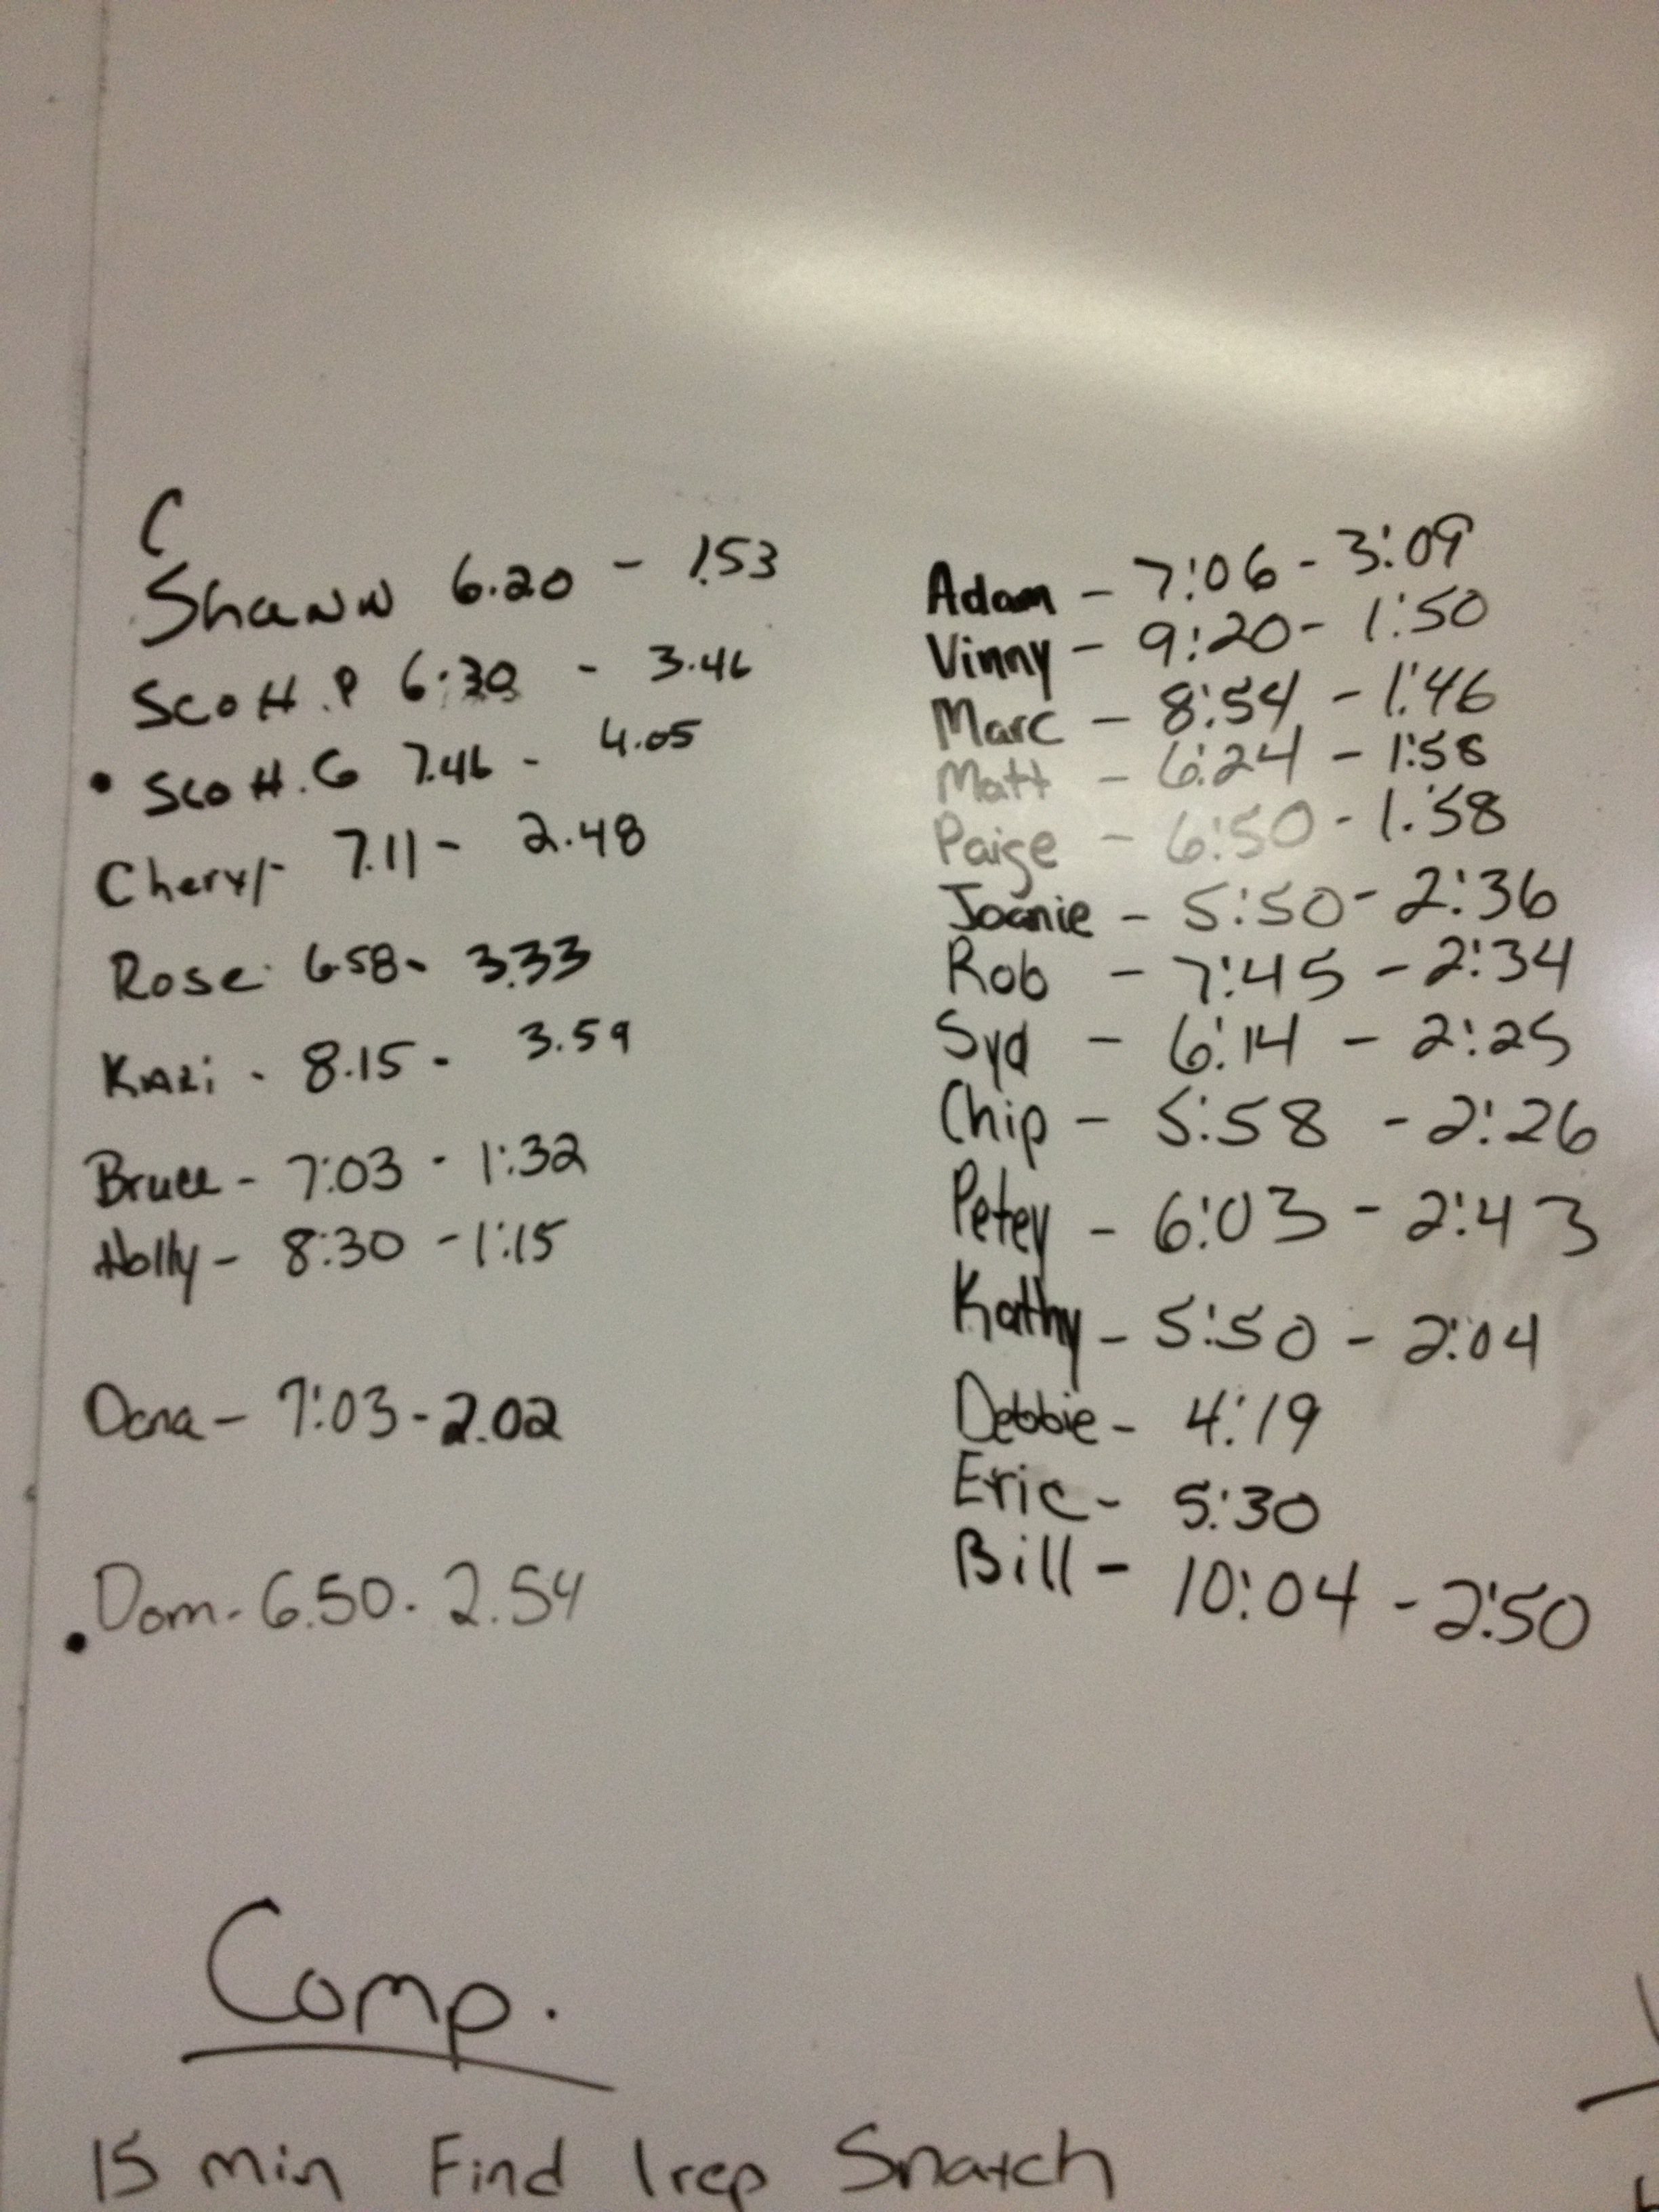 C
Shawn 6.20 - 1.53
Scott.P 6:30 - 3.46
• Scott.G 7.46 - 4.05
Cheryl- 7.11 - 2.48
Rose 6.58- 3.33
KARi - 8.15 - 3.59
Bruce - 7:03 - 1:32
Holly - 8:30 - 1:15
Dana - 7:03 - 2.02
. Dom - 6.50 - 2.54
Adam - 7:06 - 3:09
Vinny - 9:20 - 1:50
Marc - 8:54 - 1:46
Matt - 6:24 - 1:58
Paige - 6:50 - 1:58
Joanie - 5:50 - 2:36
Rob - 7:45 - 2:34
Syd - 6:14 - 2:25
Chip - 5:58 - 2:26
Petey - 6:03 - 2:43
Kathy - 5:50 - 2:04
Debbie - 4:19
Eric - 5:30
Bill - 10:04 - 2:50
Comp.
15 min Find 1 rep Snatch